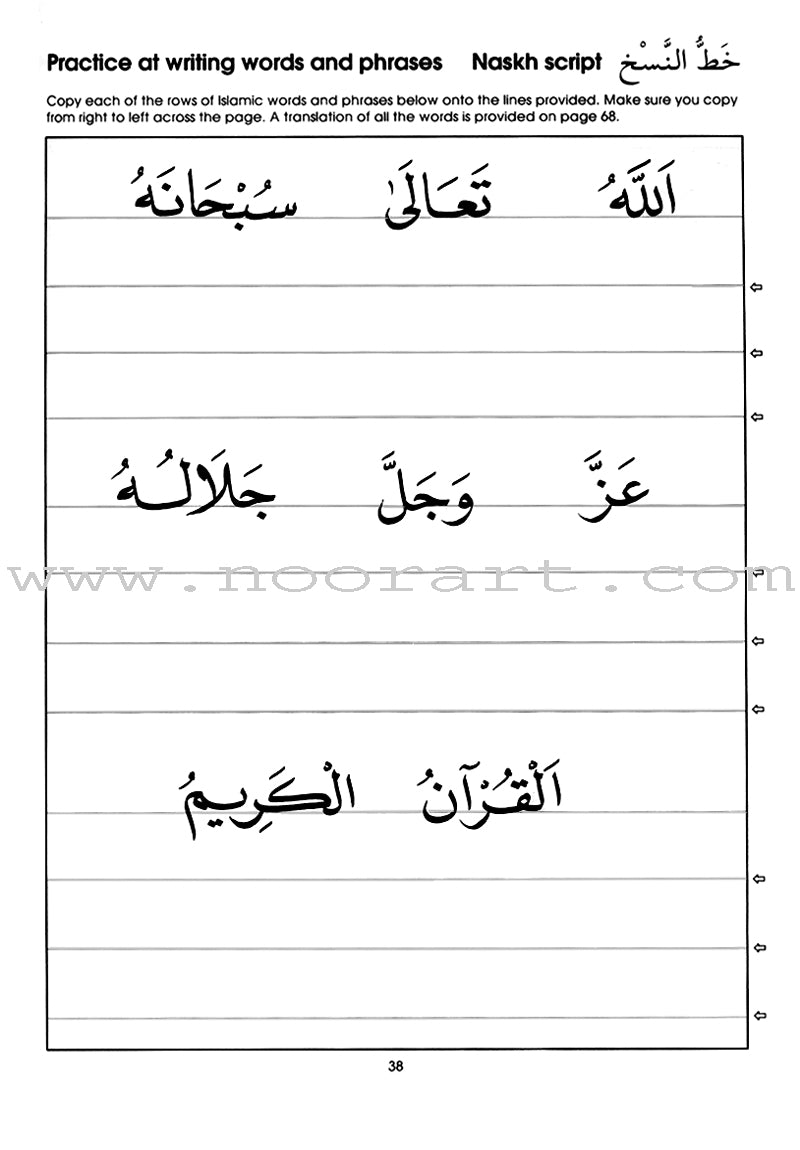 Practice at writing words and phrases Naskh script خَطُّ النَّسْخ
Copy each of the rows of Islamic words and phrases below onto the lines provided. Make sure you copy
from right to left across the page. A translation of all the words is provided on page 68.
اَللَّهُ تَعَالَىٰ سُبْحَانَهُ
عَزَّ وَجَلَّ جَلَالُهُ
www.noorart.com
اَلْقُرْآنُ الْكَرِيمُ
38